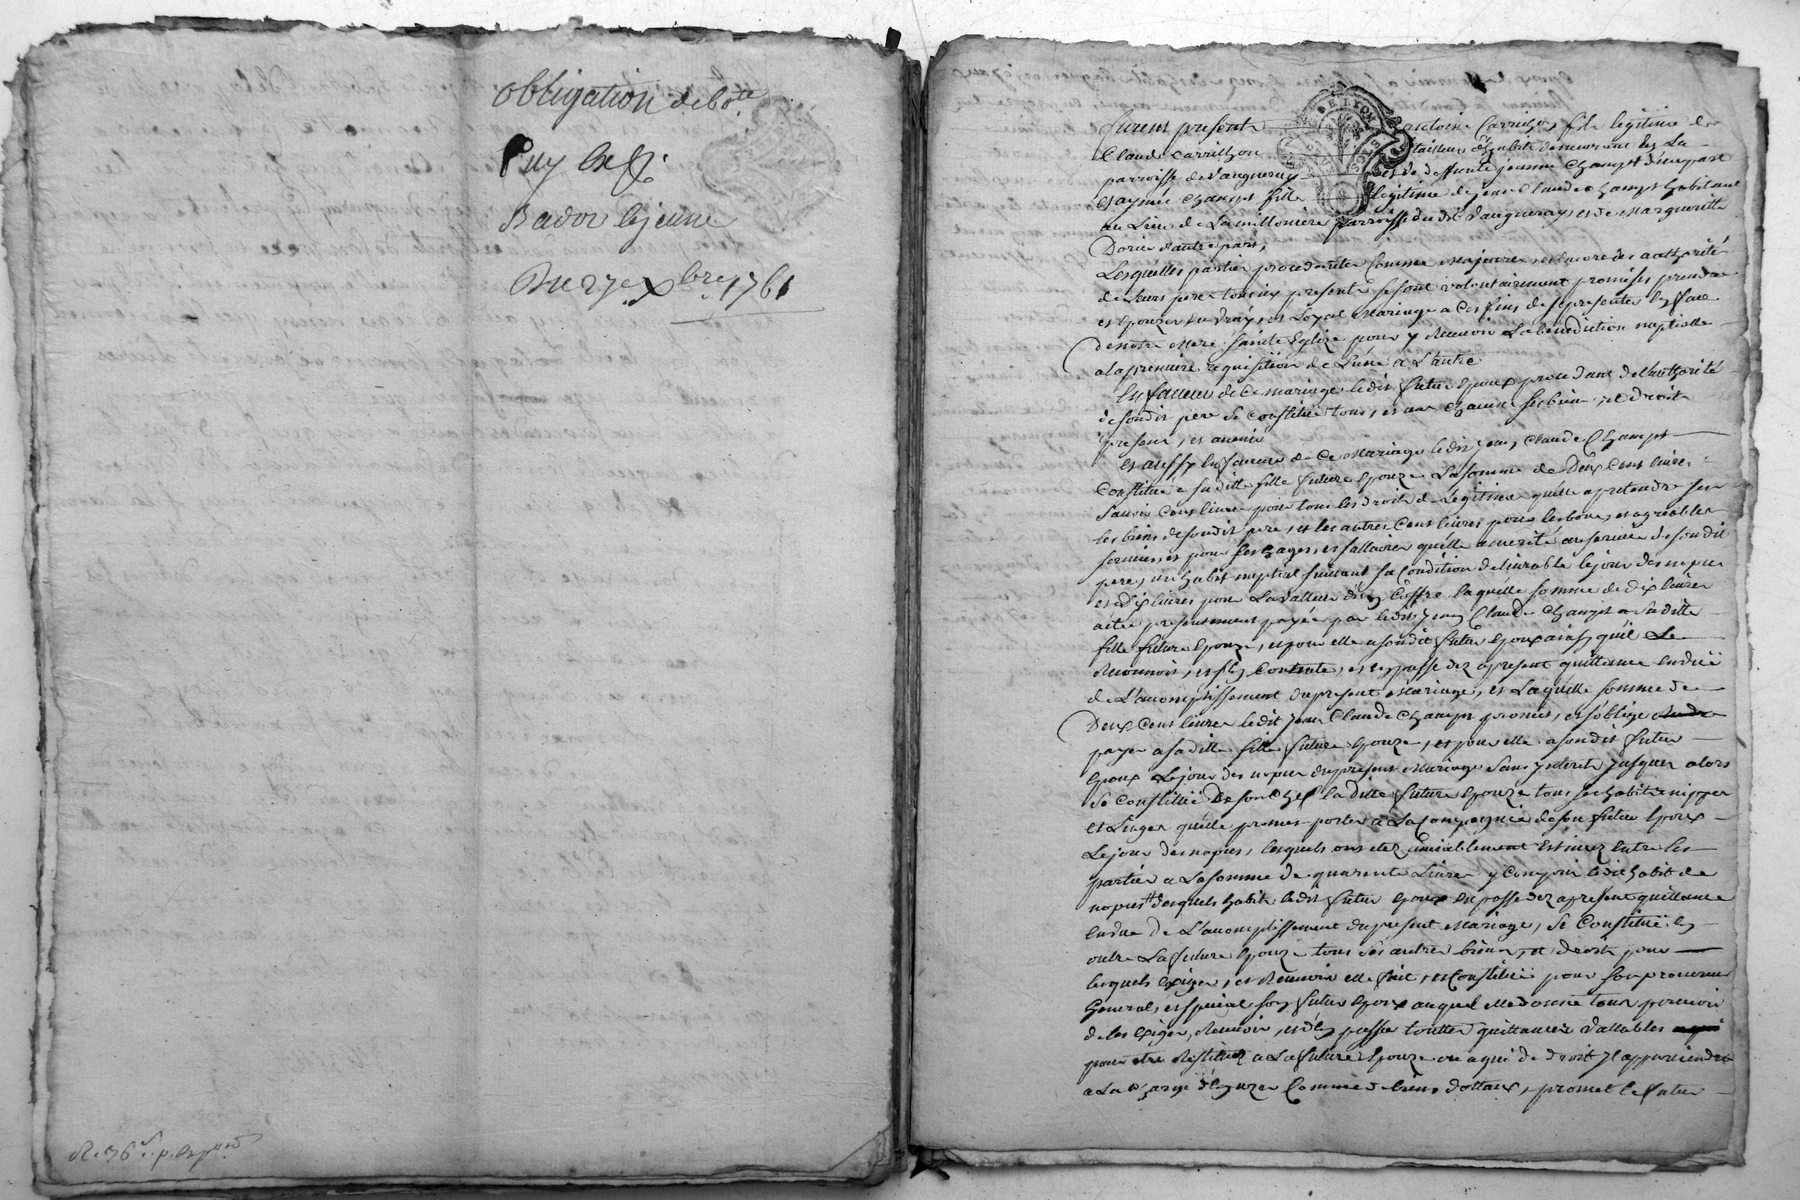 obligation de 60lt
Puy
Bador lejeune
Du 27e Xbre 1761
DE LYON
furent presents antoine Carrichon fils legitime de
Claude Carrichon habitt demeurant
parroisse de Vaugneray et de deffunte jeanne Champt d'une part
et aymée Champt fille legitime de jean Claude Champt habitant
au Lieu de La milloniere parroisse du dit Vaugneray et de Margueritte
Dorier d'autre part,
Lesquelles parties procedantes Comme Majeures, et encore des authorités
de leurs peres tous icy presents se sont volontairement promises prendre
et Epouzer en vray, et Loyal Mariage a Ces fins de se presenter en face
de notre Mere Sainte Eglize pour y Recevoir La benediction nuptialle
a la premiere requisition de L'une a L'autre
En faveur de Ce mariage ledit futur Epoux procedant de l'authorité
de son dit pere Se Constitüe tous, et un Chacun ses biens, et droits
presents, et avenir
Et aussy En faveur de Ce Mariage ledit jean Claude Champt
Constitüe a sa ditte fille future Epouze La somme de Deux Cent livres
Savoir Cent livres pour tous les droits de Legitime qu'elle a pretendre sur
les biens de son dit pere, et les autres Cent livres pour les bons, et agreables
services, et pour les gages, et sallaires qu'elle a merité au service de son dit
pere, un habit nuptial suivant sa Condition delivrable le jour des nopces
et dix livres pour La valleur d'un Coffre laquelle somme de dix livres
a eté presentement payée par ledit jean Claude Champt a sa ditte
fille future Epouze, et pour elle a son dit futur Epoux ainsy qu'il Le
Reconnoit, et s'en Contente, et en passe dez a present quittance en düe
de L'accomplissement du present Mariage, et Laquelle somme de
Deux Cent livres ledit jean Claude Champt promet, et s'oblige
payer a sa ditte fille future Epouze, et pour elle a son dit futur
Epoux Le jour des nopces du present Mariage Sans interets jusques alors
Se Constitüe De son Chef la ditte future Epouze tous ses habits nippes
et Linges qu'elle promet porter a La Compagnie de son futur Epoux
Le jour des nopces, lesquels ont eté amiablement estimez entre les
parties a La somme de quarente Livres y Compris ledit habit de
nopces desquels habits ledit futur Epoux En passe dez a present quittance
En düe de L'accomplissement du present Mariage, Se Constitüe En
outre La future Epouze tous ses autres biens, et droits pour
lesquels Exiger, et Recevoir elle fait, et Constitüe pour son procureur
General, et special son futur Epoux auquel elle donne tous pouvoir
de les Exiger, Recevoir, et d'en passer touttes quittances vallables
pour etre Restituez a La future Epouze ou a qui de droit il appartiendra
a La Charge d'en user Comme de biens dottaux, promet le futur